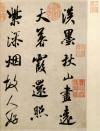 淡墨秋山畫遠
天暮霞還照
紫添煙故人好